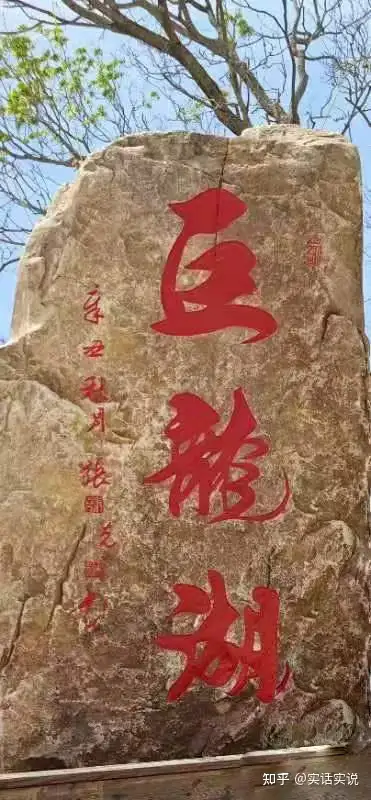 巨龍湖
辛丑秋月張
知乎 @实话实说